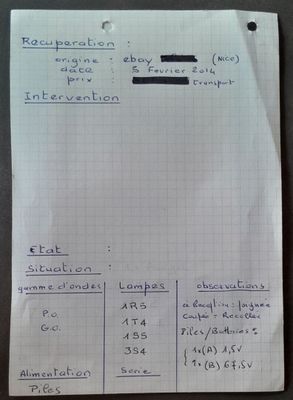 Recuperation :
origine : ebay (Nice)
date : 5 Fevrier 2014
prix : transport
Intervention
Etat :
Situation :
gamme d'ondes Lampes observations
1R5 à Reception :
P.O. 1T4 Coupée = Recollée
G.O. 1S5 Piles/Batteries :
3S4 1x (A) 1,5v
1x (B) 67,5v
Alimentation Serie
Piles